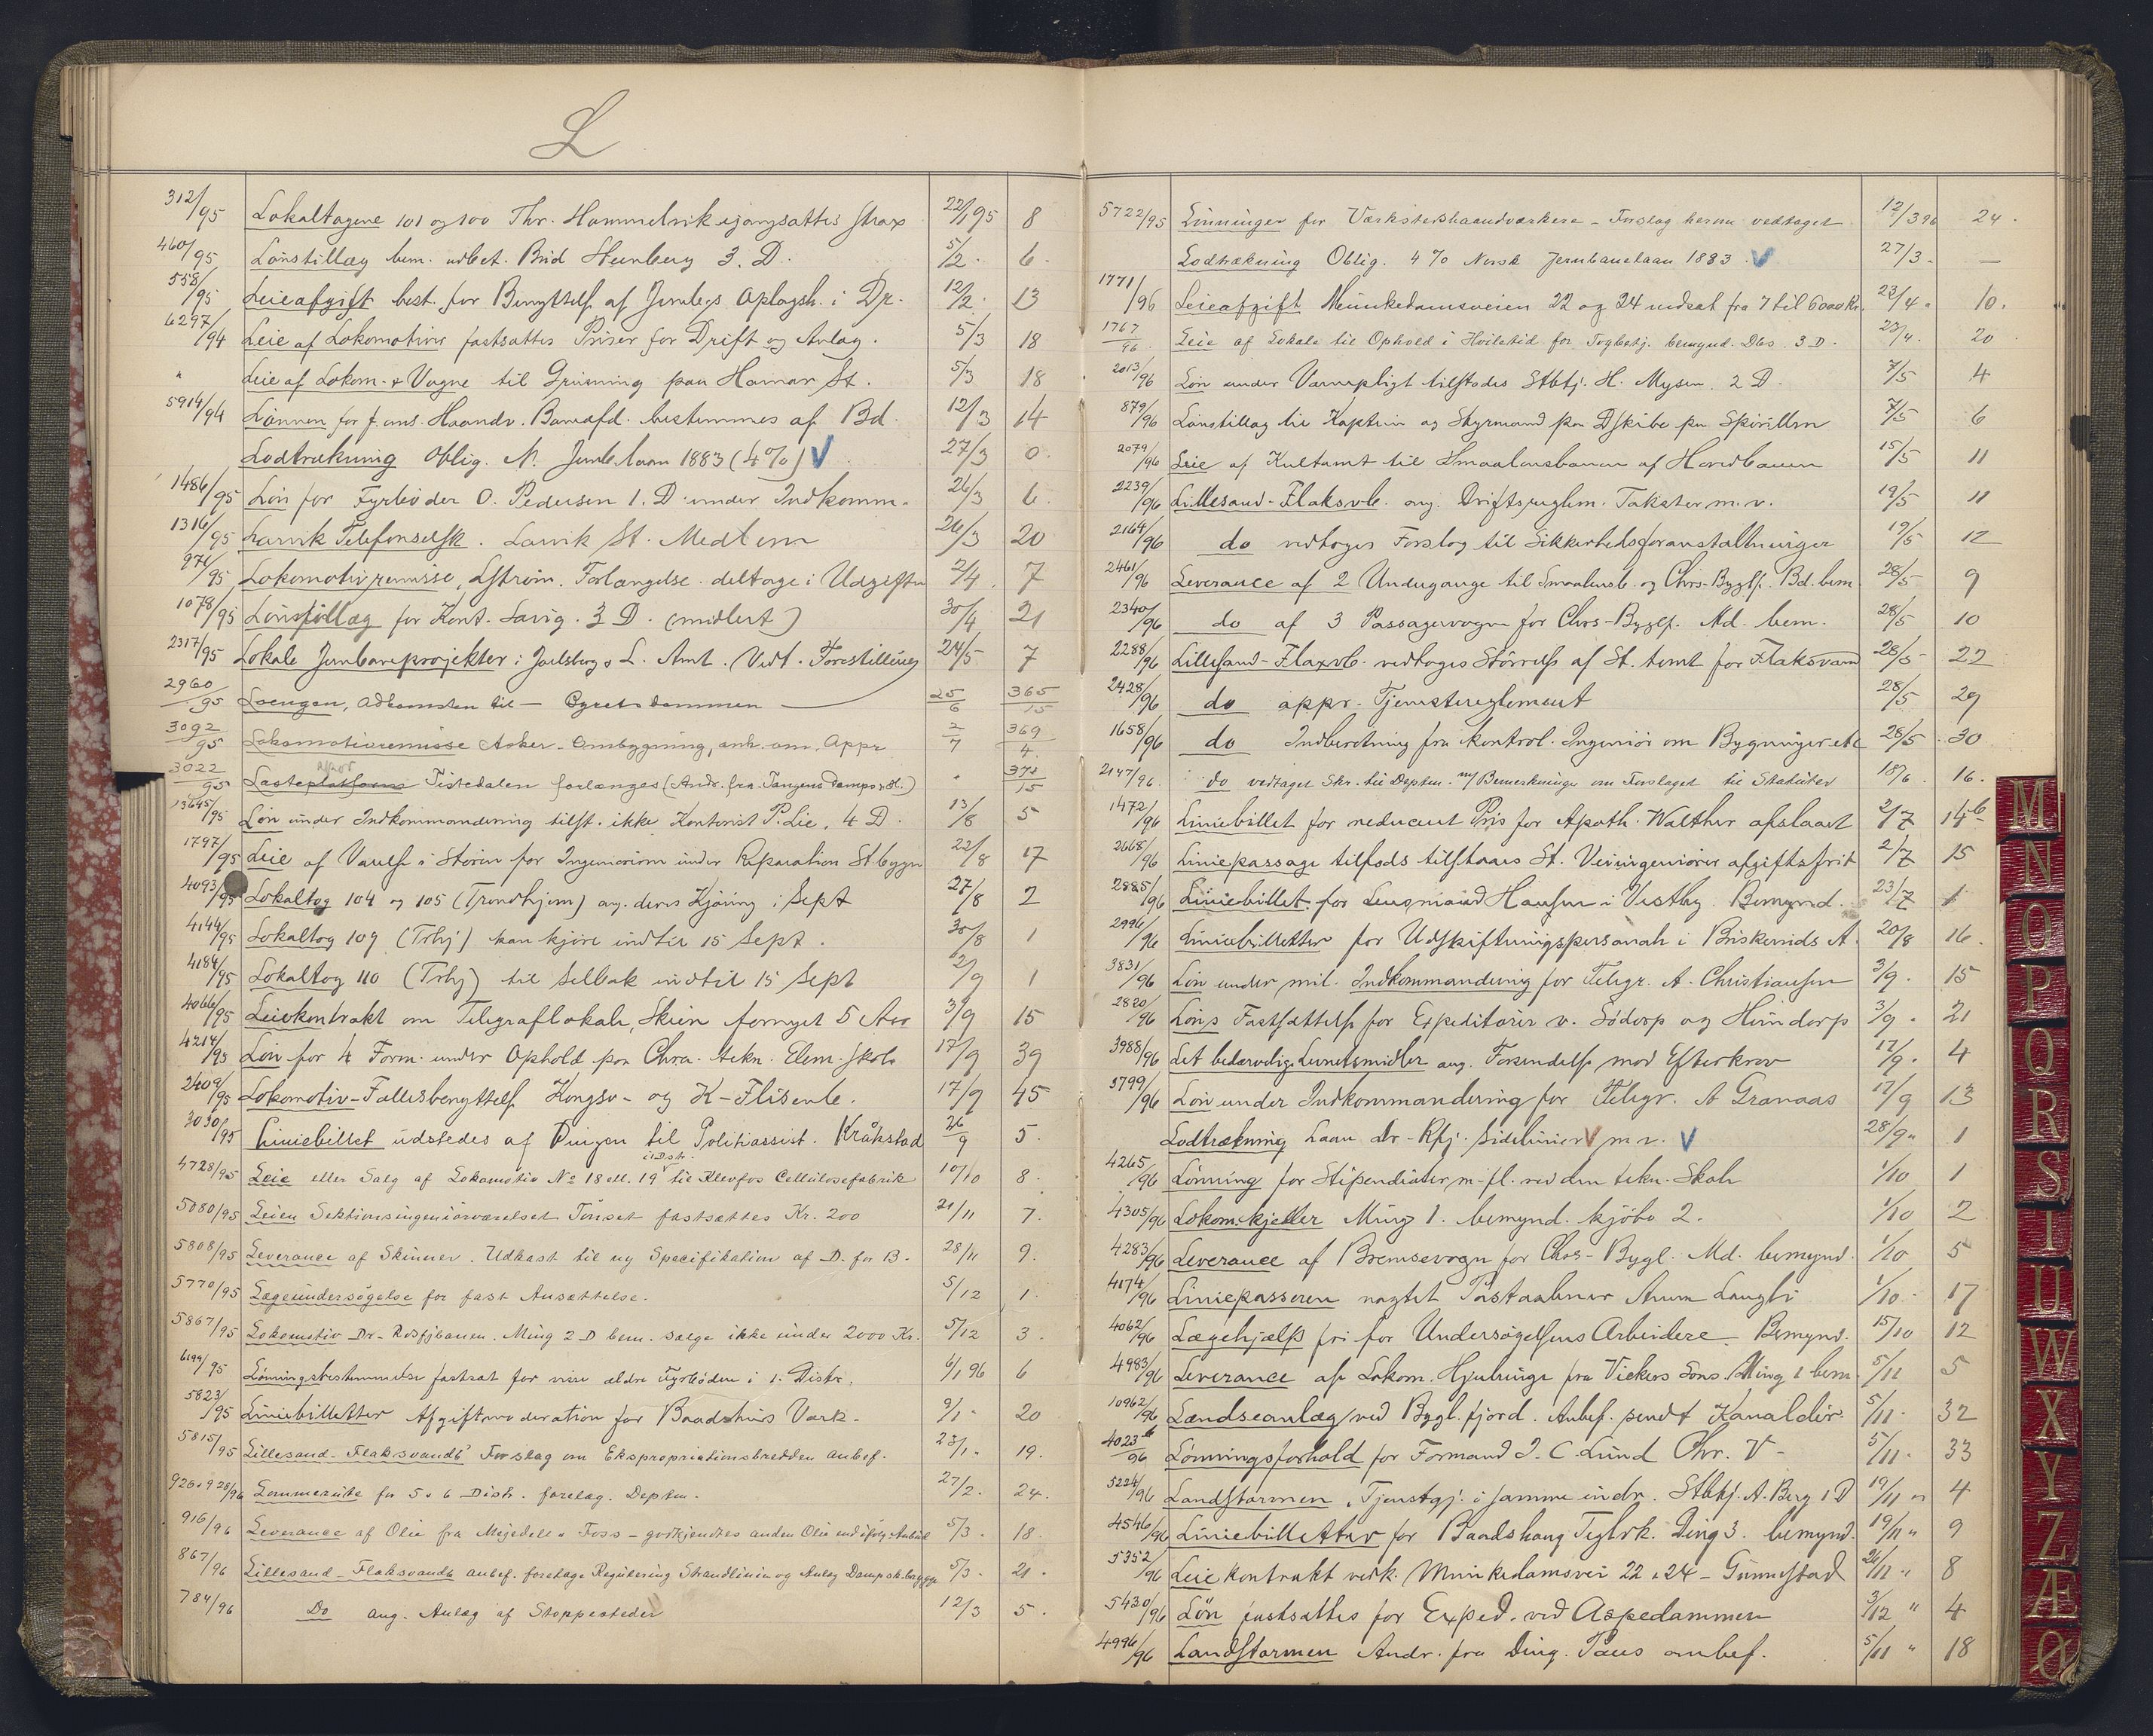 L
312/95 Lokaltogene 101 og 100 Thr. Hommelvik igangsættes strax 22/1 95 8
460/95 Lönstillæg bem. udbet. Brid Steenberg 3. D. 5/2 6
558/95 Leieafgift best. for Benyttelse af Jernb.s Oplagsh. i Dr. 12/2 13
6297/94 Leie af Lokomotiver fastsættes Priser for Drift og Anlæg. 5/3 18
" Leie af Lokom. & Vogne til Grusning paa Hamar St. 5/3 18
5914/94 Lönnen for f. ans. Haandv. Baneafd. bestemmes af Bd. 12/3 14
Lodtrækning Oblig. N. Jernb.laan 1883 (4%) V 27/3 0
1486/95 Lön for Fyrböder O. Pedersen 1. D. under Indkomm. 26/3 6
1316/95 Larvik Telefonselsk. Larvik St. Medlem 26/3 20
971/95 Lokomotivremisse, Lström. Forlængelse deltage i Udgifter 2/4 7
1078/95 Lönstillæg for Kont. Lavig. 3 D. (midlert) 30/4 21
2317/95 Lokale Jernbaneprojekter i Jarlsberg & L. Amt. Vedt. Forestilling 24/5 7
2960/95 Loengen, Adkomsten til – Egnetsdammen 25/6 365/15
3092/95 Lokomotivremisse Asker. Ombygning, anh. om. Appr 2/7 369/4
3022/95 Lasteplatform Tistedalen forlænges (Andr. fra Tangens Dampsst.) " 371/15
13645/95 Lön under Indkommandering tilst. ikke Kontorist P. Lie. 4 D. 13/8 5
1797/95 Leie af Værelse i Stören for Ingeniören under Reparation St.bygn 22/8 17
4093/95 Lokaltog 104 og 105 (Trondhjem) ang. deres Kjöring i Sept 27/8 2
4144/95 Lokaltog 109 (Trhj) kan kjöre indtil 15 Sept. 30/8 1
4184/95 Lokaltog 110 (Trhj) til Selbak indtil 15 Sept 2/9 1
4066/95 Leiekontrakt om Telegraflokale, Skien fornyet 5 Aar 3/9 15
4214/95 Lön for 4 Form. under Ophold paa Chra. tekn. Elem. skole 17/9 39
2409/95 Lokomotiv-Fællesbenyttelse Kongsv- og K-Flisenb. 17/9 45
3030/95 Liniebillet udstedes af Dingen til Politiassist. Kråkstad 26/9 5.
4728/95 Leie eller Salg af Lokomotiv No 18 ell. 19 i 1 Distr. til Klevfos Cellulosefabrik 10/10 8.
5080/95 Leien Sektionsingeniörværelset Tönset fastsættes Kr. 200 21/11 7.
5808/95 Leverance af Skinner. Udkast til ny Specifikation af D. for B. 28/11 9.
5770/95 Lægeundersögelse for fast Ansættelse. 5/12 1.
5867/95 Lokomotiv Dr-Rdsfjbanen. Ming 2 D bem. sælge ikke under 2000 Kr. 5/12 3.
6194/95 Lönningsbestemmelse fastsat for visse ældre Fyrbödere i 1. Distr. 6/1 96 6
5823/95 Liniebilletter Afgiftmoderation for Baadshus Værk. 9/1 20
5815/95 Lillesand-Flaksvandb. Forslag om Ekspropriationsbredden anbef. 23/1 19.
926 & 928/96 Lommeruite for 5 & 6 Distr. forelæg. Depten. 27/2. 24.
916/96 Leverance af Olie fra Mejdell & Foss – godkjendtes anden Olie end ifölg. Anbud 5/3. 18.
867/96 Lillesand-Flaksvandb anbef. foretage Regulering Strandlinien og Anlæg Dampsk.brygge 5/3. 21.
784/96 Do ang. Anlæg af Stoppesteder 12/3 5.
5722/95 Lönninger for Værkstedshaandværkere – Forslag herom vedtaget 12/3 96 24.
Lodtrækning Oblig. 4 % Norsk Jernbanelaan 1883. V 27/3. —
1771/96 Leieafgift Munkedamsveien 22 og 24 nedsat fra 7 til 6000 Kr. 23/4 10.
1767/96 Leie af Lokale til Ophold i Hviletid for Togbetj. bemynd. Dbs. 3 D. 23/4. 20
2013/96 Lön under Værnepligt tilstodes Stbtj. H. Mysen 2 D. 7/5 4
879/96 Lönstillæg til Kaptein og Styrmand paa Dskibe paa Spirillen 7/5 6
2079/96 Leie af Kultomt til Smaalensbanen af Hovedbanen 15/5 11
2239/96 Lillesand-Flaksvb. ang. Driftsreglem. Takster m. v. 19/5 11
2164/96 do vedtoges Forslag til Sikkerhedsforanstaltninger 19/5 12
2461/96 Leverance af 2 Undergange til Smaalensb. og Chrs-Byglf. Bd. bem. 28/5 9
2340/96 do af 3 Passagervogne for Chrs-Byglf. Md. bem. 28/5 10
2288/96 Lillesand-Flaxvb. vedtoges Störrelse af St. tomt for Flaksvand 28/5 22
2428/96 do appr. Tjenestereglement 28/5 29
1658/96 do Indberetning fra Kontrol. Ingeniör om Bygninger etc 28/5 30
2147/96. do vedtaget Skr. til Depten. m/ Bemerkninger om Forslaget til Statuter 18/6. 16.
1472/96 Liniebillet for reduceret Pris for Apoth. Walther afslaaet 2/7 14b
2668/96 Liniepassage tilfods tilstaaes St. Veiingeniörer afgiftsfrit 2/7 15
2885/96 Liniebillet for Lensmand Hansen i Vestby. Bemynd. 23/7 1
2996/96 Liniebilletter for Udskiftningspersonale i Buskeruds A. 20/8 16.
3831/96 Lön under mil. Indkommandering for Telegr. A. Christiansen 3/9. 15
2820/96 Löns Fastsættelse for Expeditörer v. Södorp og Hundorp 3/9. 21
3988/96 Let bedærvelige Levnetsmidler ang. Forsendelse mod Efterkrav 17/9. 4
3799/96 Lön under Indkommandering for Telegr. A Granaas 17/9 13
Lodtrækning Laan Dr-Rfj. Sidelinier V m v. V 28/9 " 1
4265/96 Lönning for Stipendiater m. fl. ved den tekn. Skole 1/10 1
4305/96 Lokom.kjedler Ming 1. bemynd. kjöbe 2. 1/10 2
4283/96 Leverance af Bremsevogn for Chrs-Bygl. Md. bemynd. 1/10 5
4174/96 Liniepasseren nægtet Postaabner Anna Langli 1/10. 17
4062/96 Lægehjælp fri for Undersögelsens Arbeidere. Bemynd. 15/10 12
4983/96 Leverance af Lokom. Hjulringe fra Vickers Sons. Ming 1 bem. 5/11 5
10962/96 Lændseanlæg ved Bygl.fjord. Anbef. sendt Kanaldir. 5/11. 32
4023b/96 Lönningsforhold for Formand J. C. Lund Chr. V – 5/11. 33
5224/96 Landstormen, Tjenestgj. i samme indr. Stbtj. A. Berg 1 D 19/11 " 4
4546/96 Liniebilletter for Baadshaug Teglvk. Ding 3. bemynd. 19/11 " 9
5352/96 Leiekontrakt vedk. Munkedamsvei 22 & 24 – Gunnestad 26/11 " 8
5430/96 Lön fastsættes for Exped. ved Aspedammen 3/12 " 4
4996/96 Landstormen Andr. fra Ding. Paus anbef. 5/11 " 18
M
N
O
P
Q
R
S
T
U
W
X
Y
Z
Æ
Ø